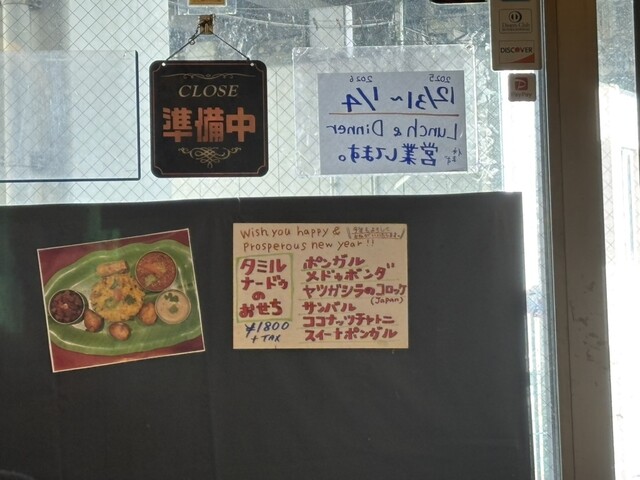 CLOSE
準備中
2025 2026
12/31~1/4
Lunch & Dinner
営業してます。
DISCOVER
Wish you happy &
Prosperous new year!!
タミル
ナードゥ
の
おせち
¥1800
+ TAX
ポンガル
メドゥボンダ
ヤツガシラのコロッケ
(Japan)
サンバル
ココナッツチャトニ
スイートポンガル